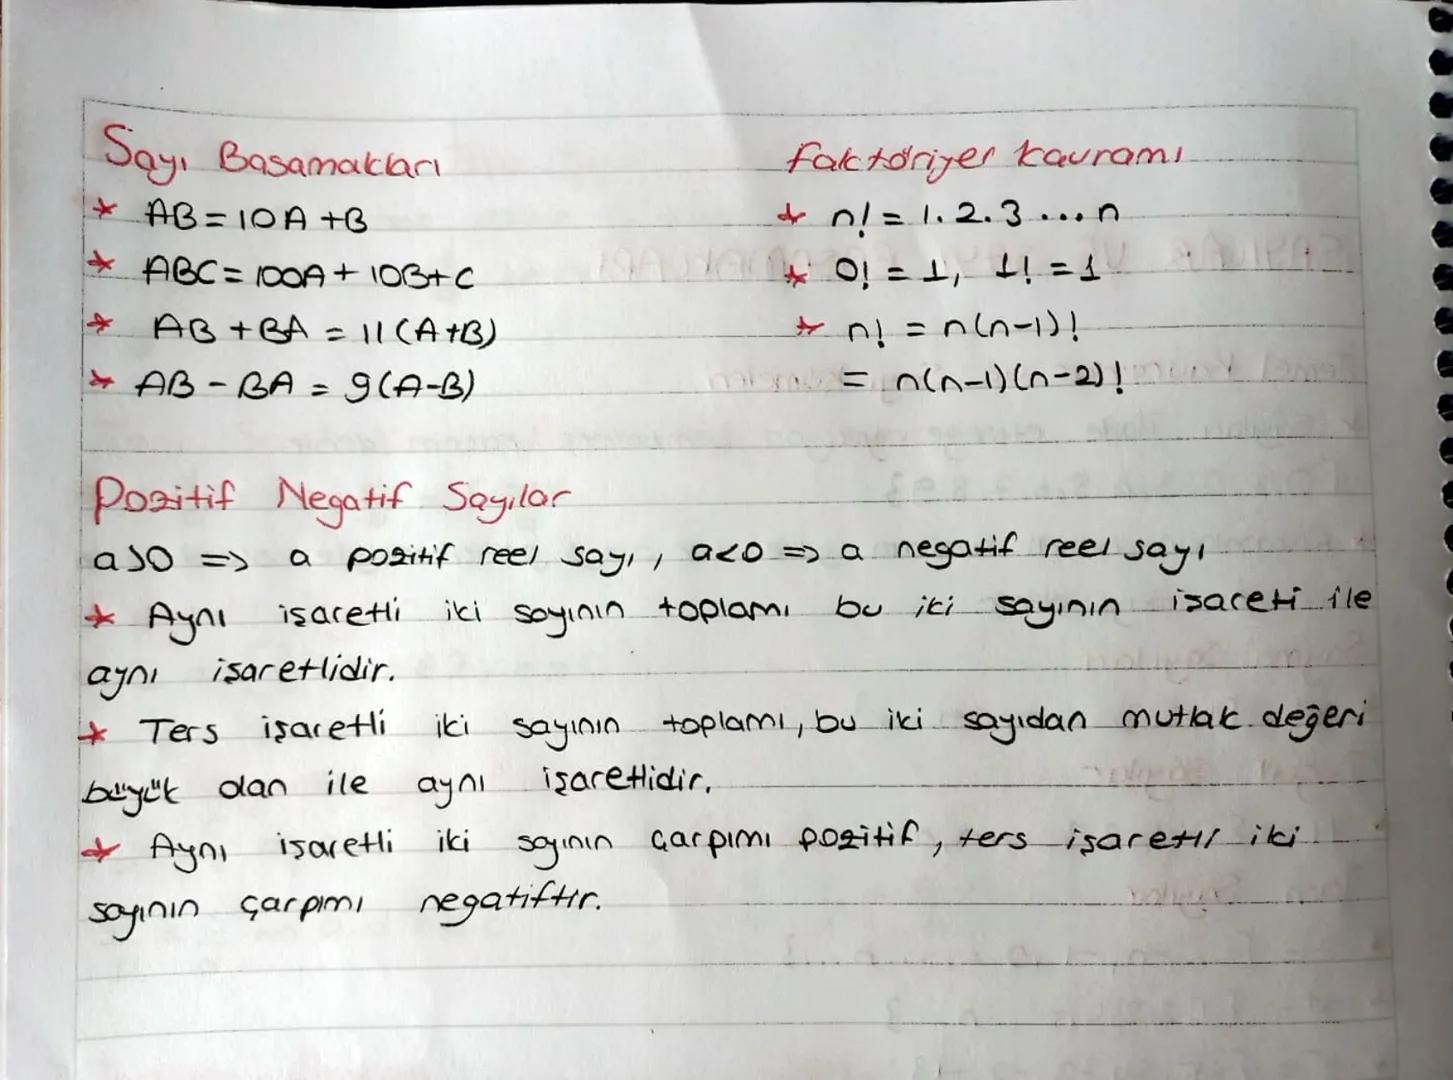 Sayı Basamakları
* AB = 10A + B
* ABC = 100A + 10B + C
* AB + BA = 11(A+B)
* AB - BA = 9(A-B)
faktöriyer kavramı
* n! = 1.2.3...n
* 0! = 1, 1! = 1
* n! = n(n-1)!
= n(n-1)(n-2)!
Pozitif Negatif Sayılar
a>0 => a pozitif reel sayı, a<0 => a negatif reel sayı
* Aynı işaretli iki sayının toplamı bu iki sayının işareti ile
aynı işaretlidir.
* Ters işaretli iki sayının toplamı, bu iki sayıdan mutlak değeri
büyük olan ile aynı işaretlidir.
* Aynı işaretli iki sayının çarpımı pozitif, ters işaretli iki
sayının çarpımı negatiftır.